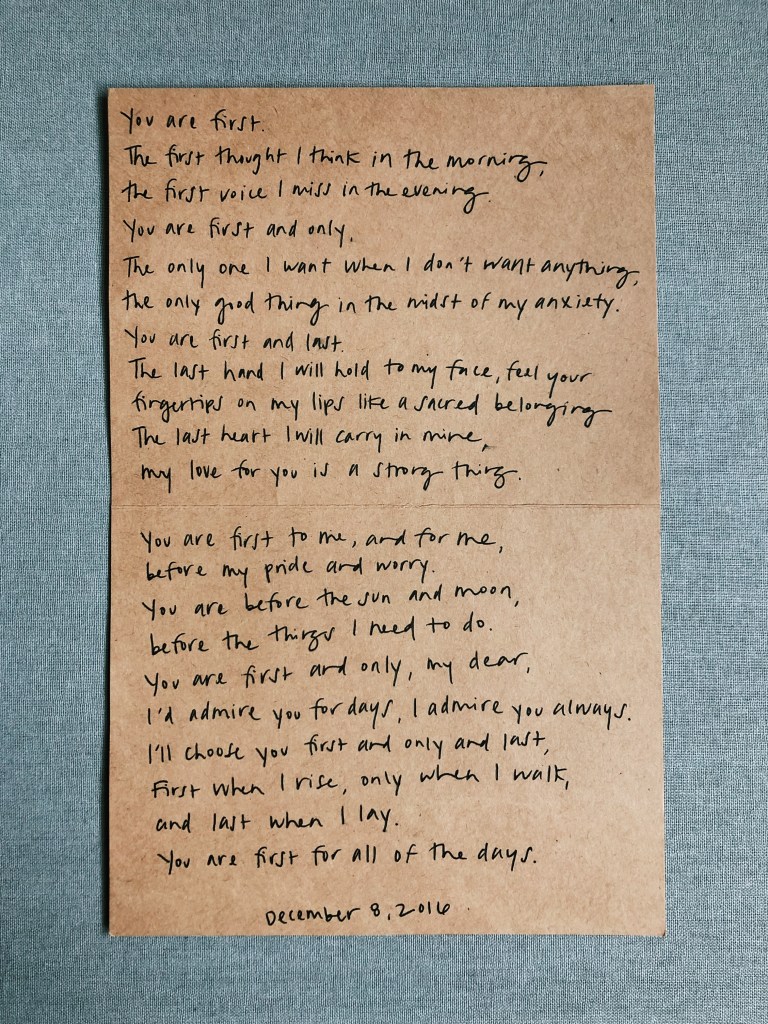 You are first.
The first thought I think in the morning,
the first voice I miss in the evening.
You are first and only,
The only one I want when I don't want anything,
the only good thing in the midst of my anxiety.
You are first and last.
The last hand I will hold to my face, feel your
fingertips on my lips like a sacred belonging
The last heart I will carry in mine,
my love for you is a strong thing.
You are first to me, and for me,
before my pride and worry.
You are before the sun and moon,
before the things I need to do.
You are first and only, my dear,
I'd admire you for days, I admire you always.
I'll choose you first and only and last,
First when I rise, only when I walk,
and last when I lay.
You are first for all of the days.
December 8, 2016